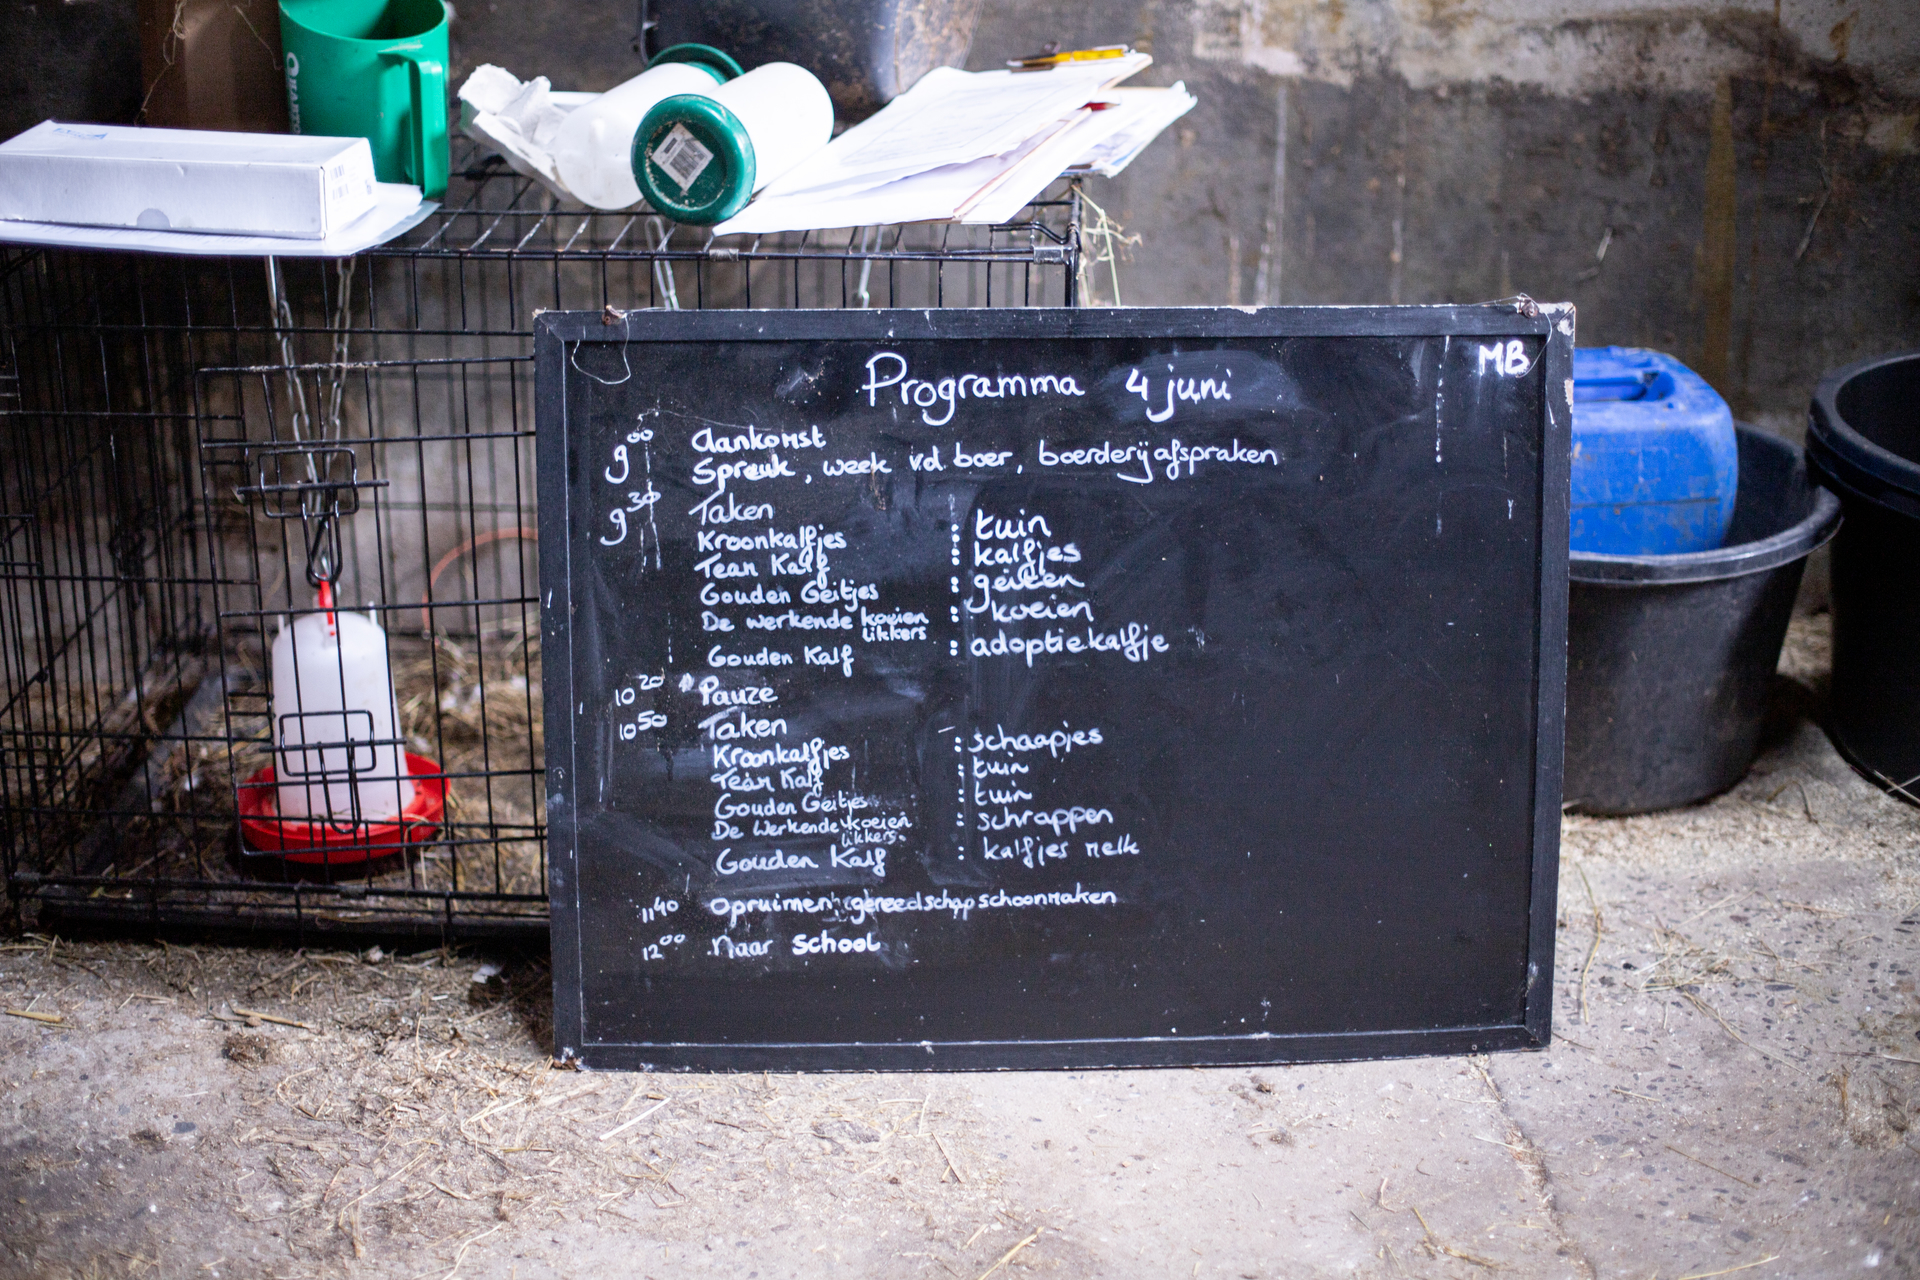 MB
Programma 4 juni
9⁰⁰ Aankomst
Spreuk, week v.d. boer, boerderijafspraken
9³⁰ Taken
Kroonkalfjes : tuin
Team Kalf : kalfjes
Gouden Geitjes : geiten
De werkende koeien : koeien
likkers
Gouden Kalf : adoptiekalfje
10²⁰ Pauze
10⁵⁰ Taken
Kroonkalfjes : schaapjes
Team Kalf : tuin
Gouden Geitjes : tuin
De Werkende koeien : schrappen
likkers
Gouden Kalf : kalfjes melk
11⁴⁰ opruimen gereedschap schoonmaken
12⁰⁰ Naar school